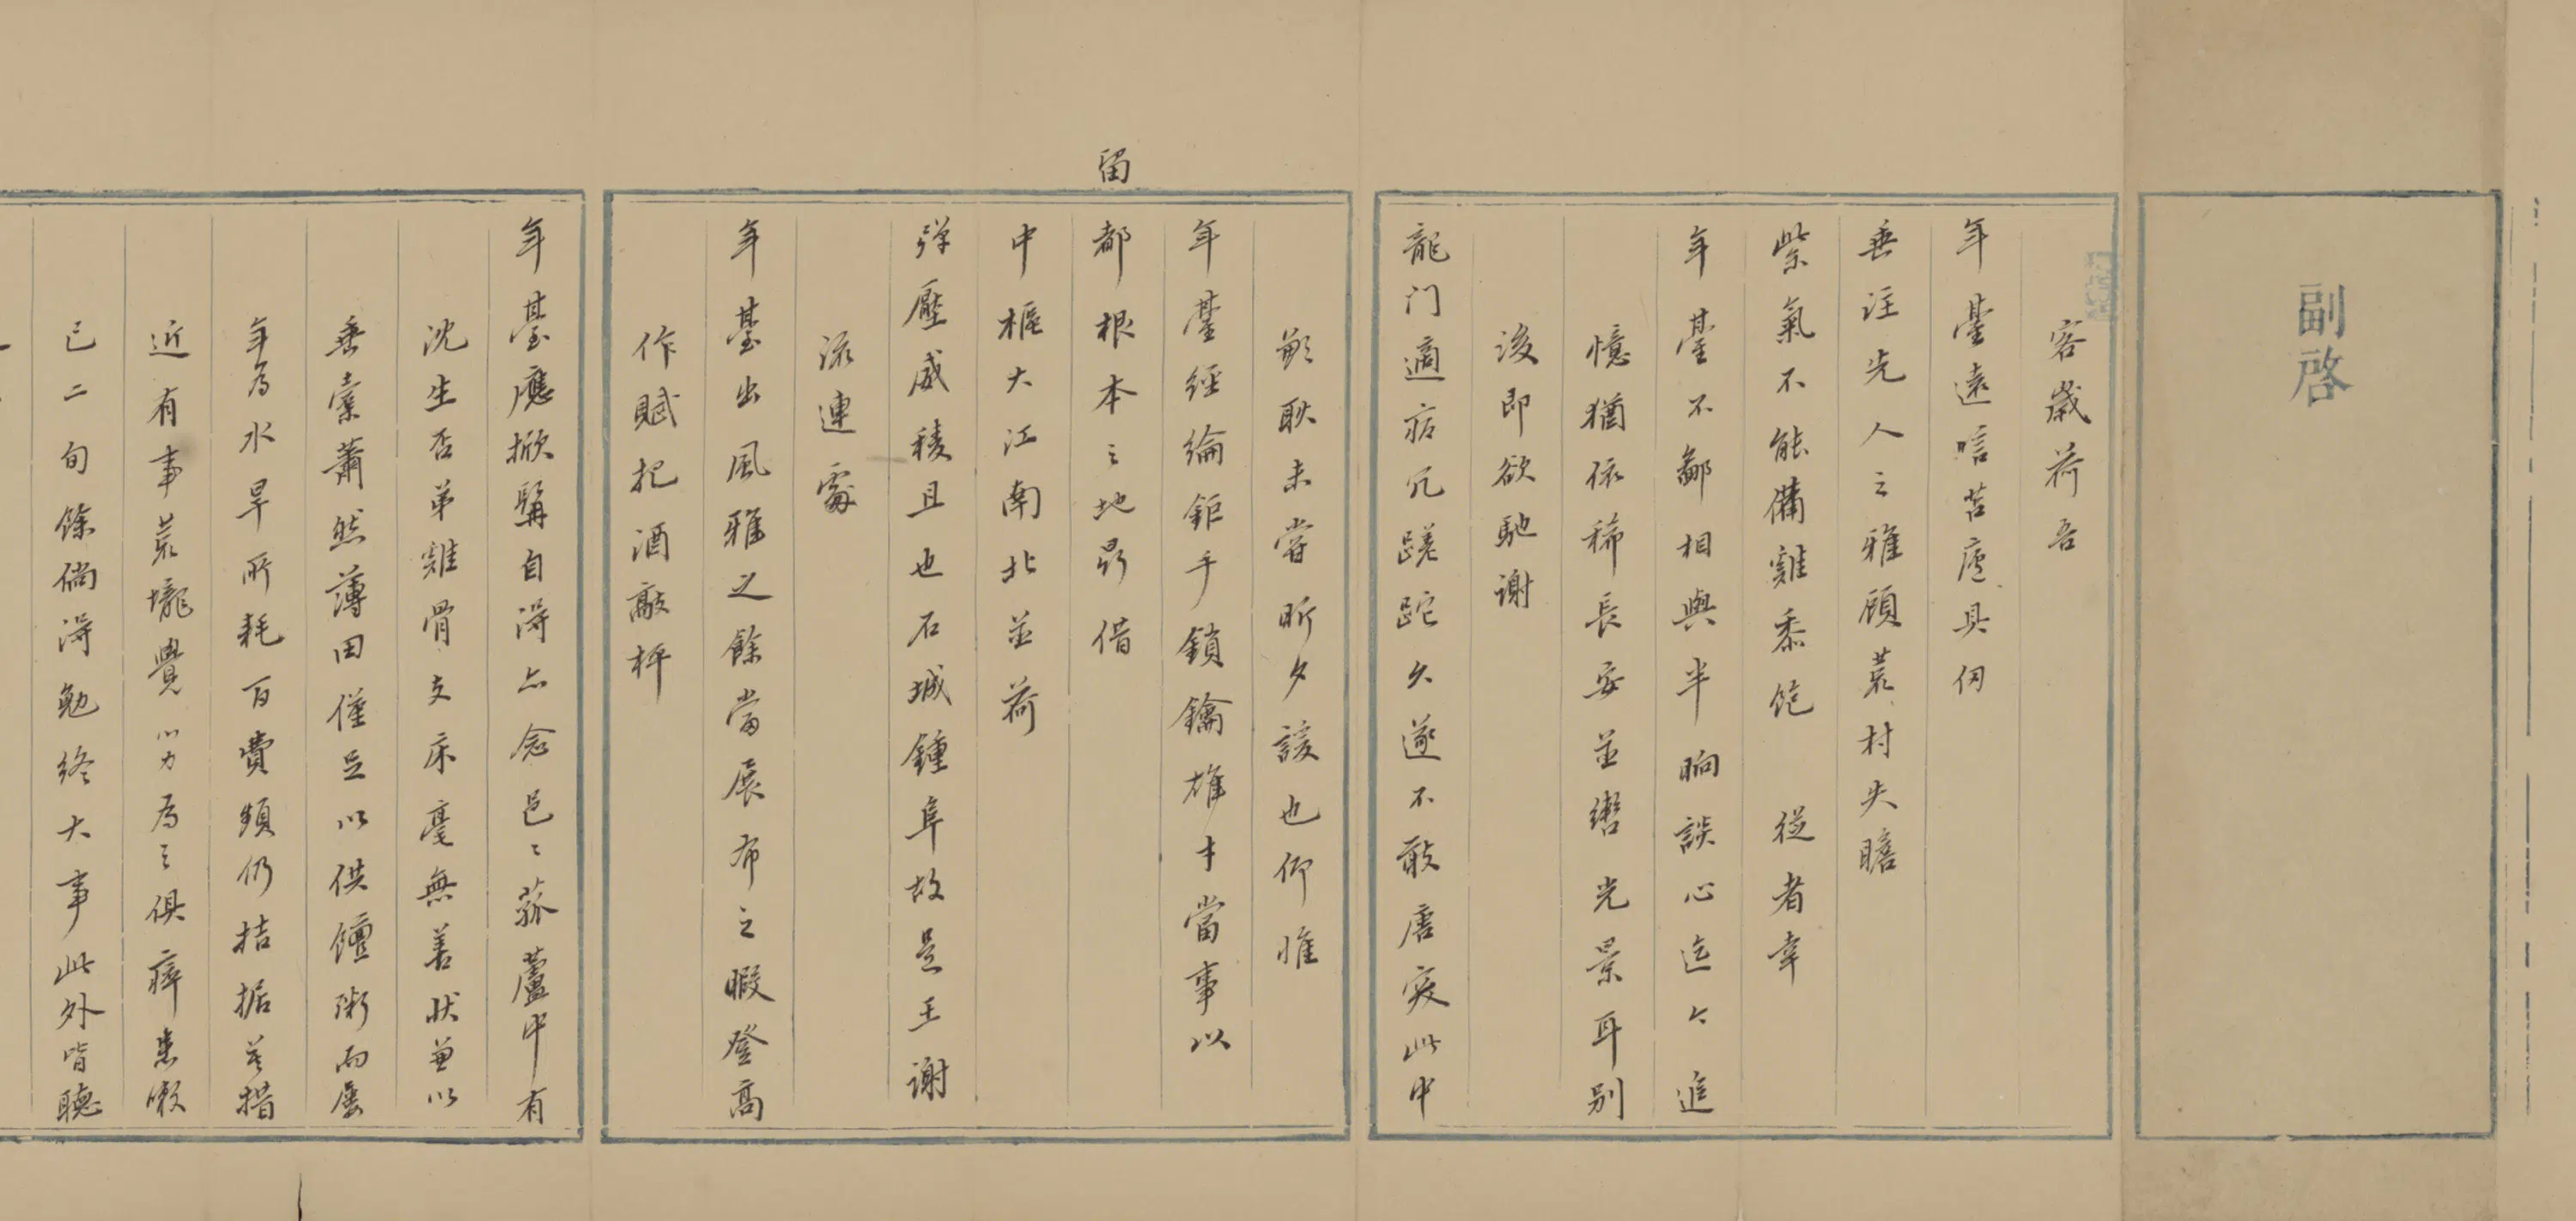 副啓
客歲荷吾
年臺遠唁苫廬具仞
垂注先人之雅顧荒村失瞻
紫氣不能備雞黍飽 從者幸
年臺不鄙相與半晌談心迄今追
憶猶依稀長安並轡光景耳別
後即欲馳謝
龍门適病冗蹉跎久遂不敢唐突此中
歉耿未嘗昕夕諼也仰惟
年臺經綸鉅手鎖鑰雄才當事以
留
都根本之地勗借
中樞大江南北並荷
彈壓威稜且也石城鍾阜故是王謝
流連處
年臺出風雅之餘當展布之暇登高
作賦把酒敲枰
年臺應掀髯自得亦念邑之菰蘆中有
沈生否弟雞骨支床毫無善狀兼以
垂橐蕭然薄田僅足以供饘粥而屢
年為水旱所耗百費頻仍拮据莫措
近有事荒壠覺心力為之俱瘁患嗽
已二旬餘倘得勉終大事此外皆聽